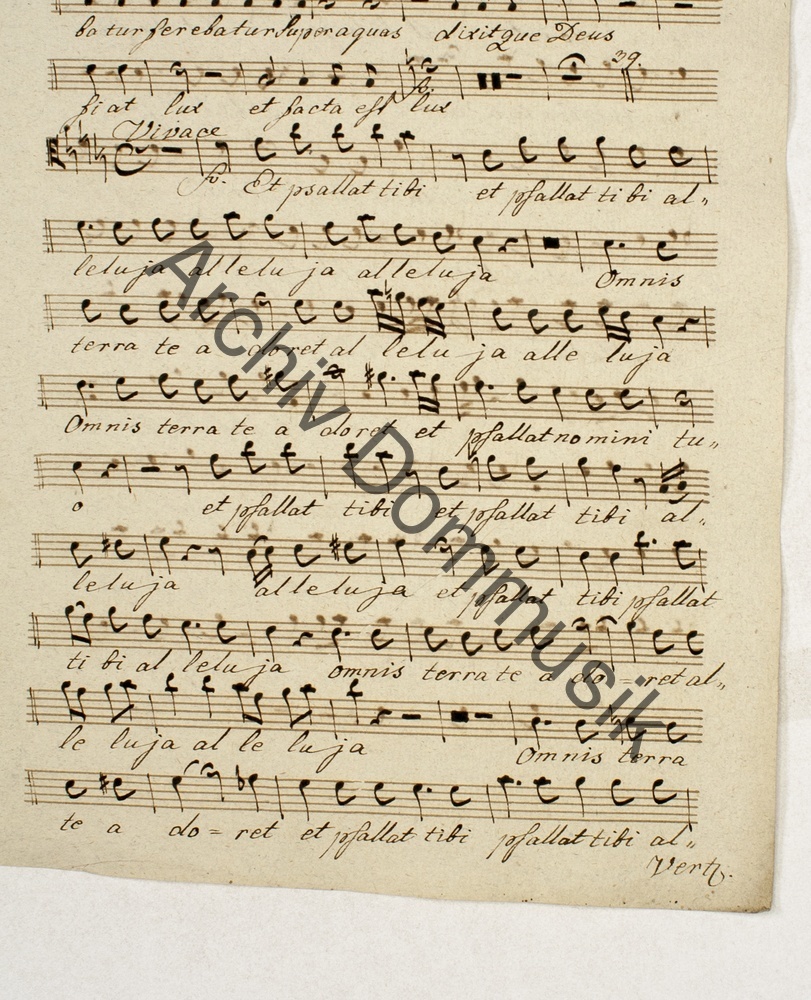 batur ferebatur Super aquas dixitque Deus
39.
fiat lux et facta est lux
Vivace
Et psallat tibi et psallat tibi al„
leluja allelu ja alleluja Omnis
terra te a doret al lelu ja alle luja
Omnis terra te a doret et psallat nomini tu„
o et psallat tibi et psallat tibi al„
leluja alleluja et psallat tibi psallat
ti bi al leluja omnis terra te a do = ret al„
le luja al le luja Omnis terra
te a do = ret et psallat tibi psallat tibi al„
Vert
Archiv Dommusik